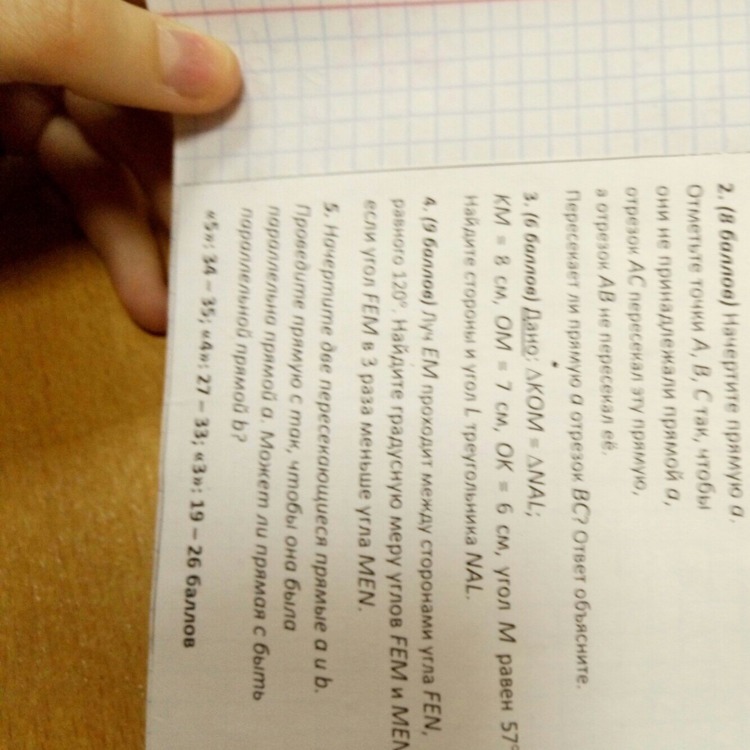 2. (8 баллов) Начертите прямую a.
Отметьте точки A, B, C так, чтобы
они не принадлежали прямой a,
отрезок AC пересекал эту прямую,
а отрезок AB не пересекал её.
Пересекает ли прямую a отрезок BC? Ответ объясните.
3. (6 баллов) Дано: ΔKOM = ΔNAL;
KM = 8 см, OM = 7 см, OK = 6 см, угол M равен 57°
Найдите стороны и угол L треугольника NAL.
4. (9 баллов) Луч EM проходит между сторонами угла FEN,
равного 120°. Найдите градусную меру углов FEM и MEN
если угол FEM в 3 раза меньше угла MEN.
5. Начертите две пересекающиеся прямые a и b.
Проведите прямую c так, чтобы она была
параллельна прямой a. Может ли прямая c быть
параллельной прямой b?
«5»: 34 – 35; «4»: 27 – 33; «3»: 19 – 26 баллов